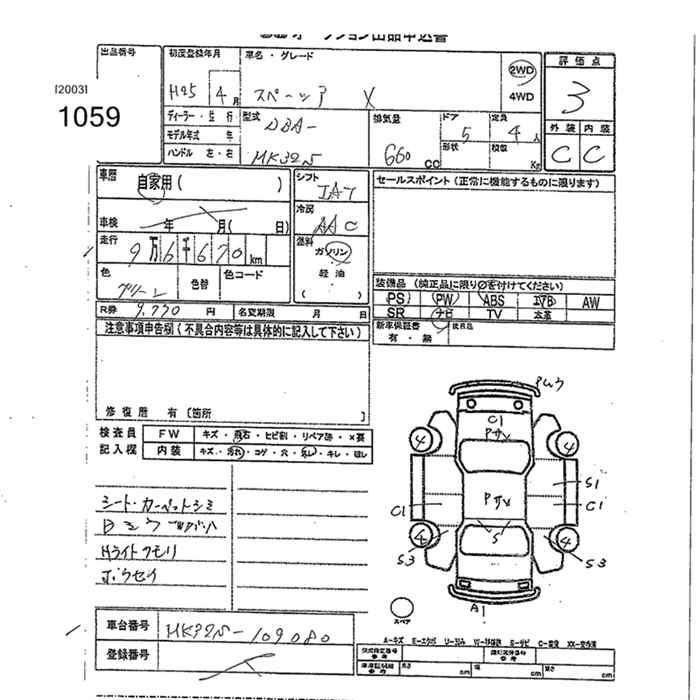 オークション出品申込書
出品番号
[2003]
1059
初度登録年月
H25 4月
車名・グレード
スペーシア X
2WD
4WD
評価点
3
外装 内装
C C
ディーラー・並行
モデル年式 年
ハンドル 左・右
型式
DBA-
MK32S
排気量
660 CC
ドア
5
形状
定員
4人
積載
Kg
車歴
自家用( )
車検 年 月( 日)
走行
9万6千670 km
色
グリーン
色替
色コード
シフト
IAT
冷房
AAC
燃料
ガソリン
軽油
( )
セールスポイント(正常に機能するものに限ります)
装備品(純正品に限り○を付けてください)
PS PW ABS エアB AW
SR ナビ TV 本革
新車保証書 後日品
有・無
R券 9,770 円
名変期限 月 日
注意事項申告欄(不具合内容等は具体的に記入して下さい)
修復歴 有〔箇所 〕
検査員
記入欄
FW キズ・飛石・ヒビ割・リペア跡・×要
内装 キズ・汚れ・コゲ・穴・スレ・キレ・破レ
シート・カーペットシミ
Hライトクモリ
ボウセイ
車台番号 MK32S-109080
登録番号
アムワ
C1
アサレ
4 4
S1
C1 アサレ C1
S
4 4
S3 S3
A1
スペア
A-キズ E-エクボ U-凹み W-修理跡 S-サビ C-腐食 XX-交換済
型式指定番号
参考
類別区分番号
参考
車庫証明用
参考
長さ cm 幅 cm 高さ cm